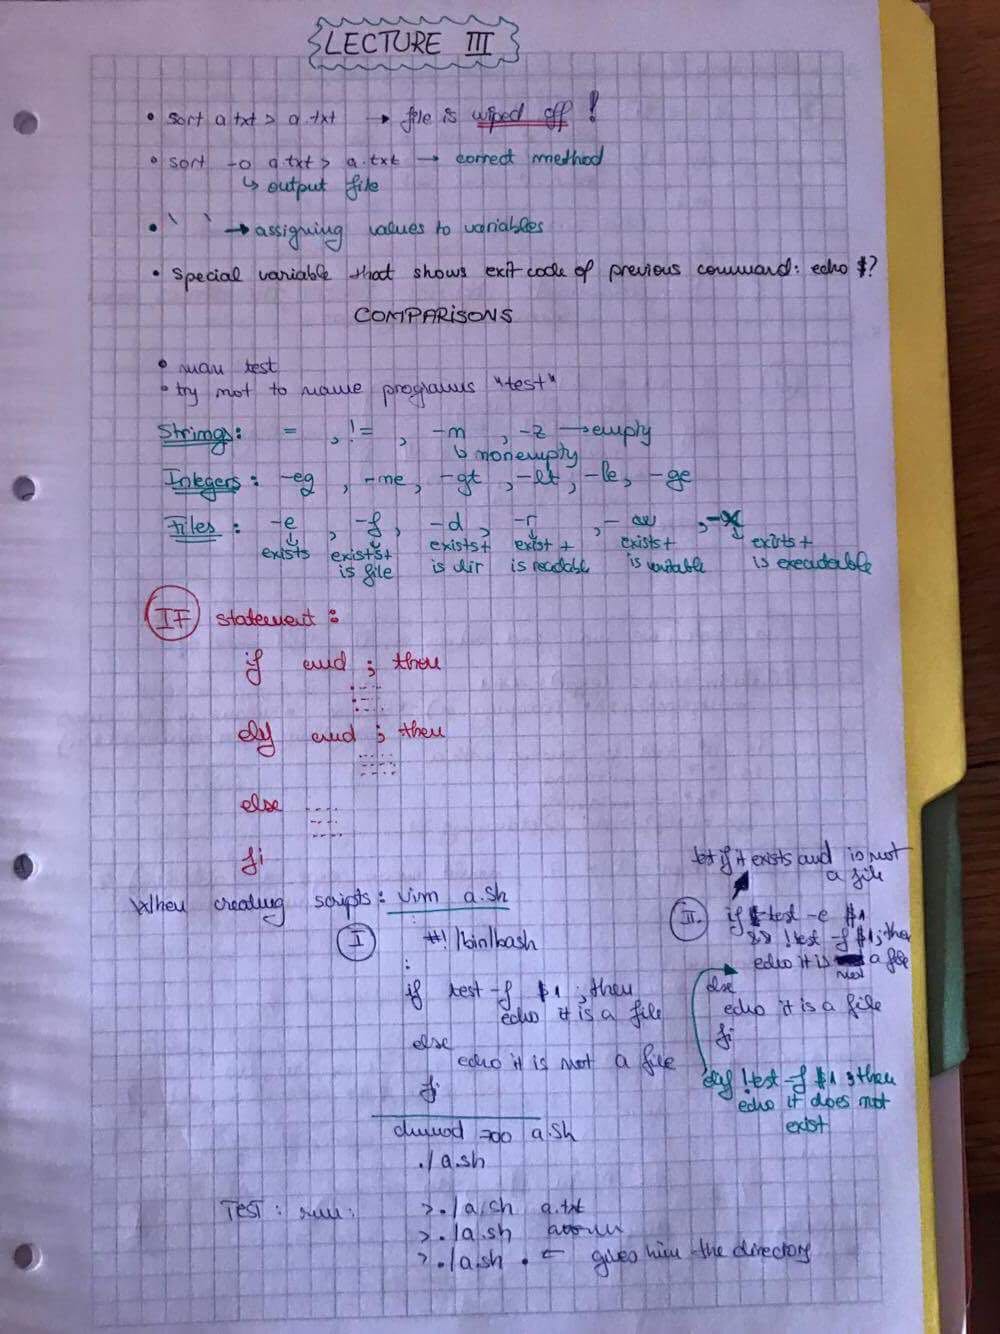 LECTURE III
• sort a.txt > a.txt → file is wiped off !
• sort -o a.txt > a.txt → correct method
↳ output file
• ` ` → assigning values to variables
• Special variable that shows exit code of previous command: echo $?
COMPARISONS
• man test
• try not to name programs "test"
Strings: = , != , -n , -z → empty
↳ nonempty
Integers: -eq , -ne, -gt , -lt, -le, -ge
Files: -e , -f, -d, -r , -w , -x
exists exists+ exists+ exist + exists+ exists +
is file is dir is readable is writable is executable
IF statement:
if cmd ; then
elif cmd ; then
else
fi
When creating scripts: vim a.sh
I #! /bin/bash
if test -f $1 ; then
echo it is a file
else
echo it is not a file
fi
chmod 700 a.sh
./a.sh
let if it exists and is not
a file
II. if test -e $1
&& !test -f $1; then
echo it is not a file
else
echo it is a file
fi
elif !test -f $1 ; then
echo it does not
exist
TEST: run:
>./a.sh a.txt
>./a.sh
>./a.sh . ← gives him the directory